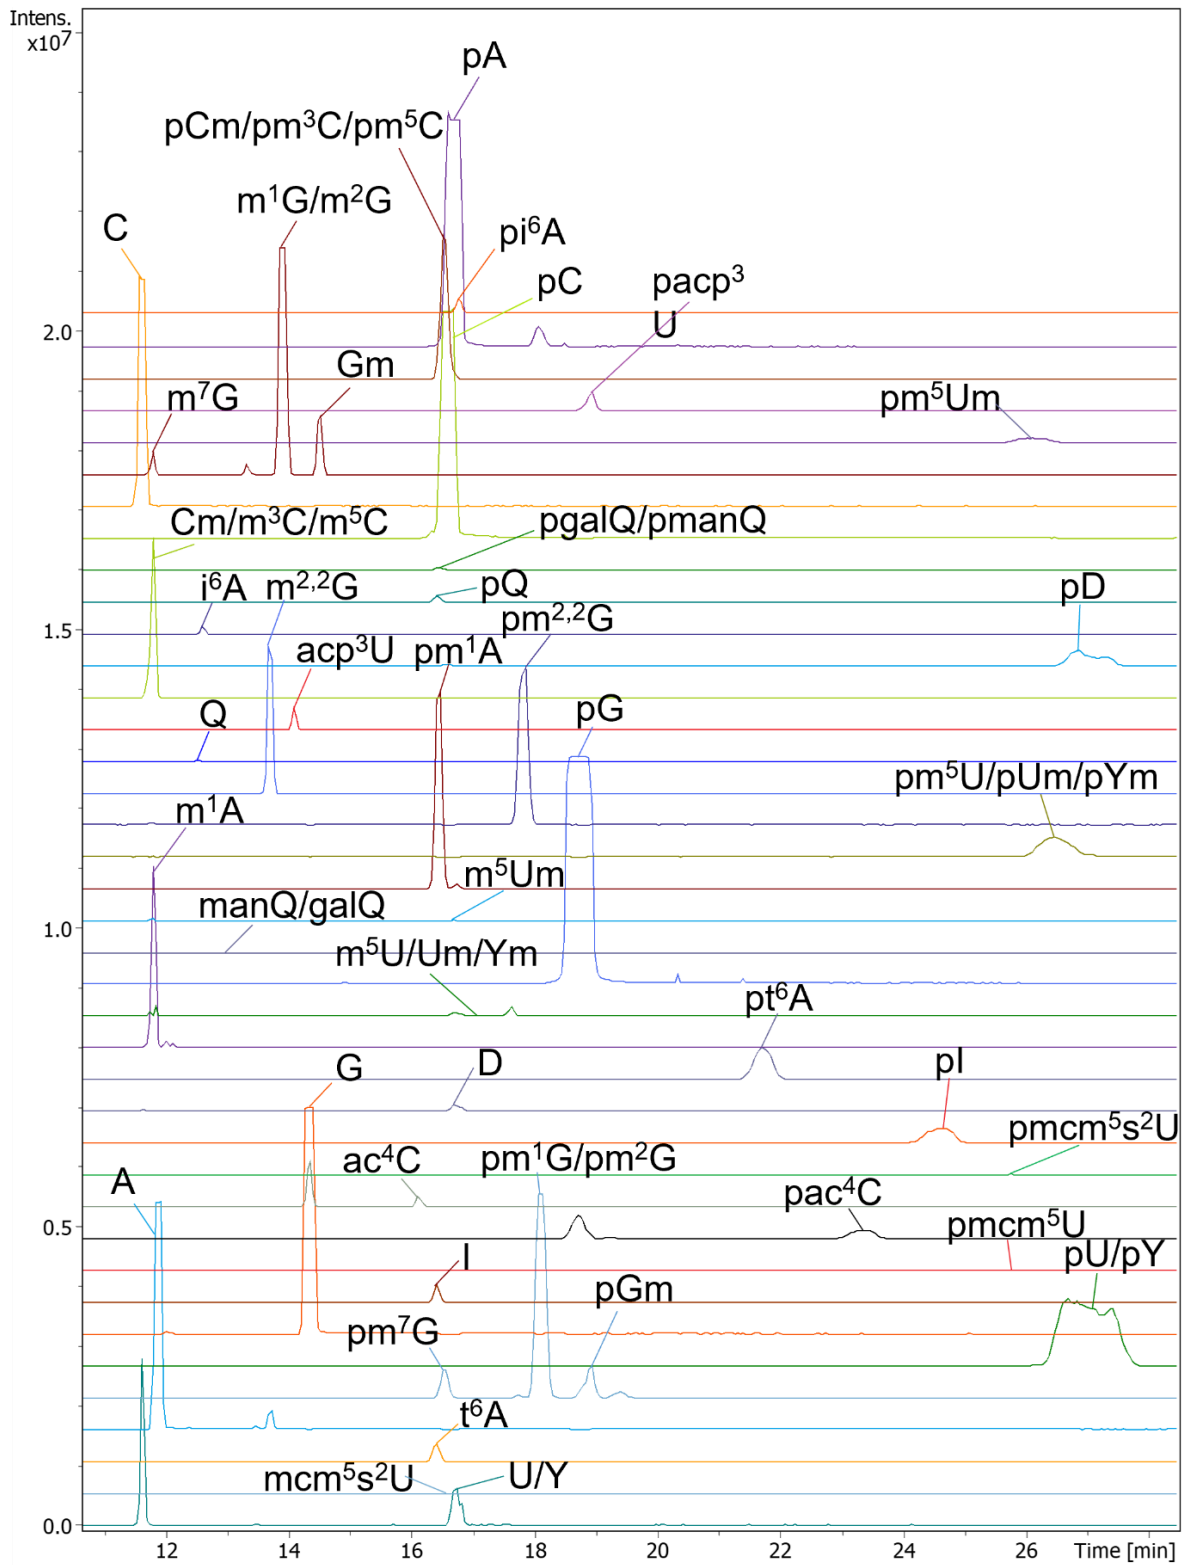 Intens.
x10⁷
pA
pCm/pm³C/pm⁵C
m¹G/m²G
C
pi⁶A
pC
pacp³
U
2.0
Gm
m⁷G
pm⁵Um
Cm/m³C/m⁵C
pgalQ/pmanQ
i⁶A
m²,²G
pQ
pD
1.5
pm²,²G
acp³U
pm¹A
Q
pG
pm⁵U/pUm/pYm
m¹A
m⁵Um
manQ/galQ
1.0
m⁵U/Um/Ym
pt⁶A
G
D
pI
pmcm⁵s²U
ac⁴C
pm¹G/pm²G
A
pac⁴C
0.5
pmcm⁵U
I
pU/pY
pGm
pm⁷G
t⁶A
mcm⁵s²U
U/Y
0.0
12 14 16 18 20 22 24 26 Time [min]